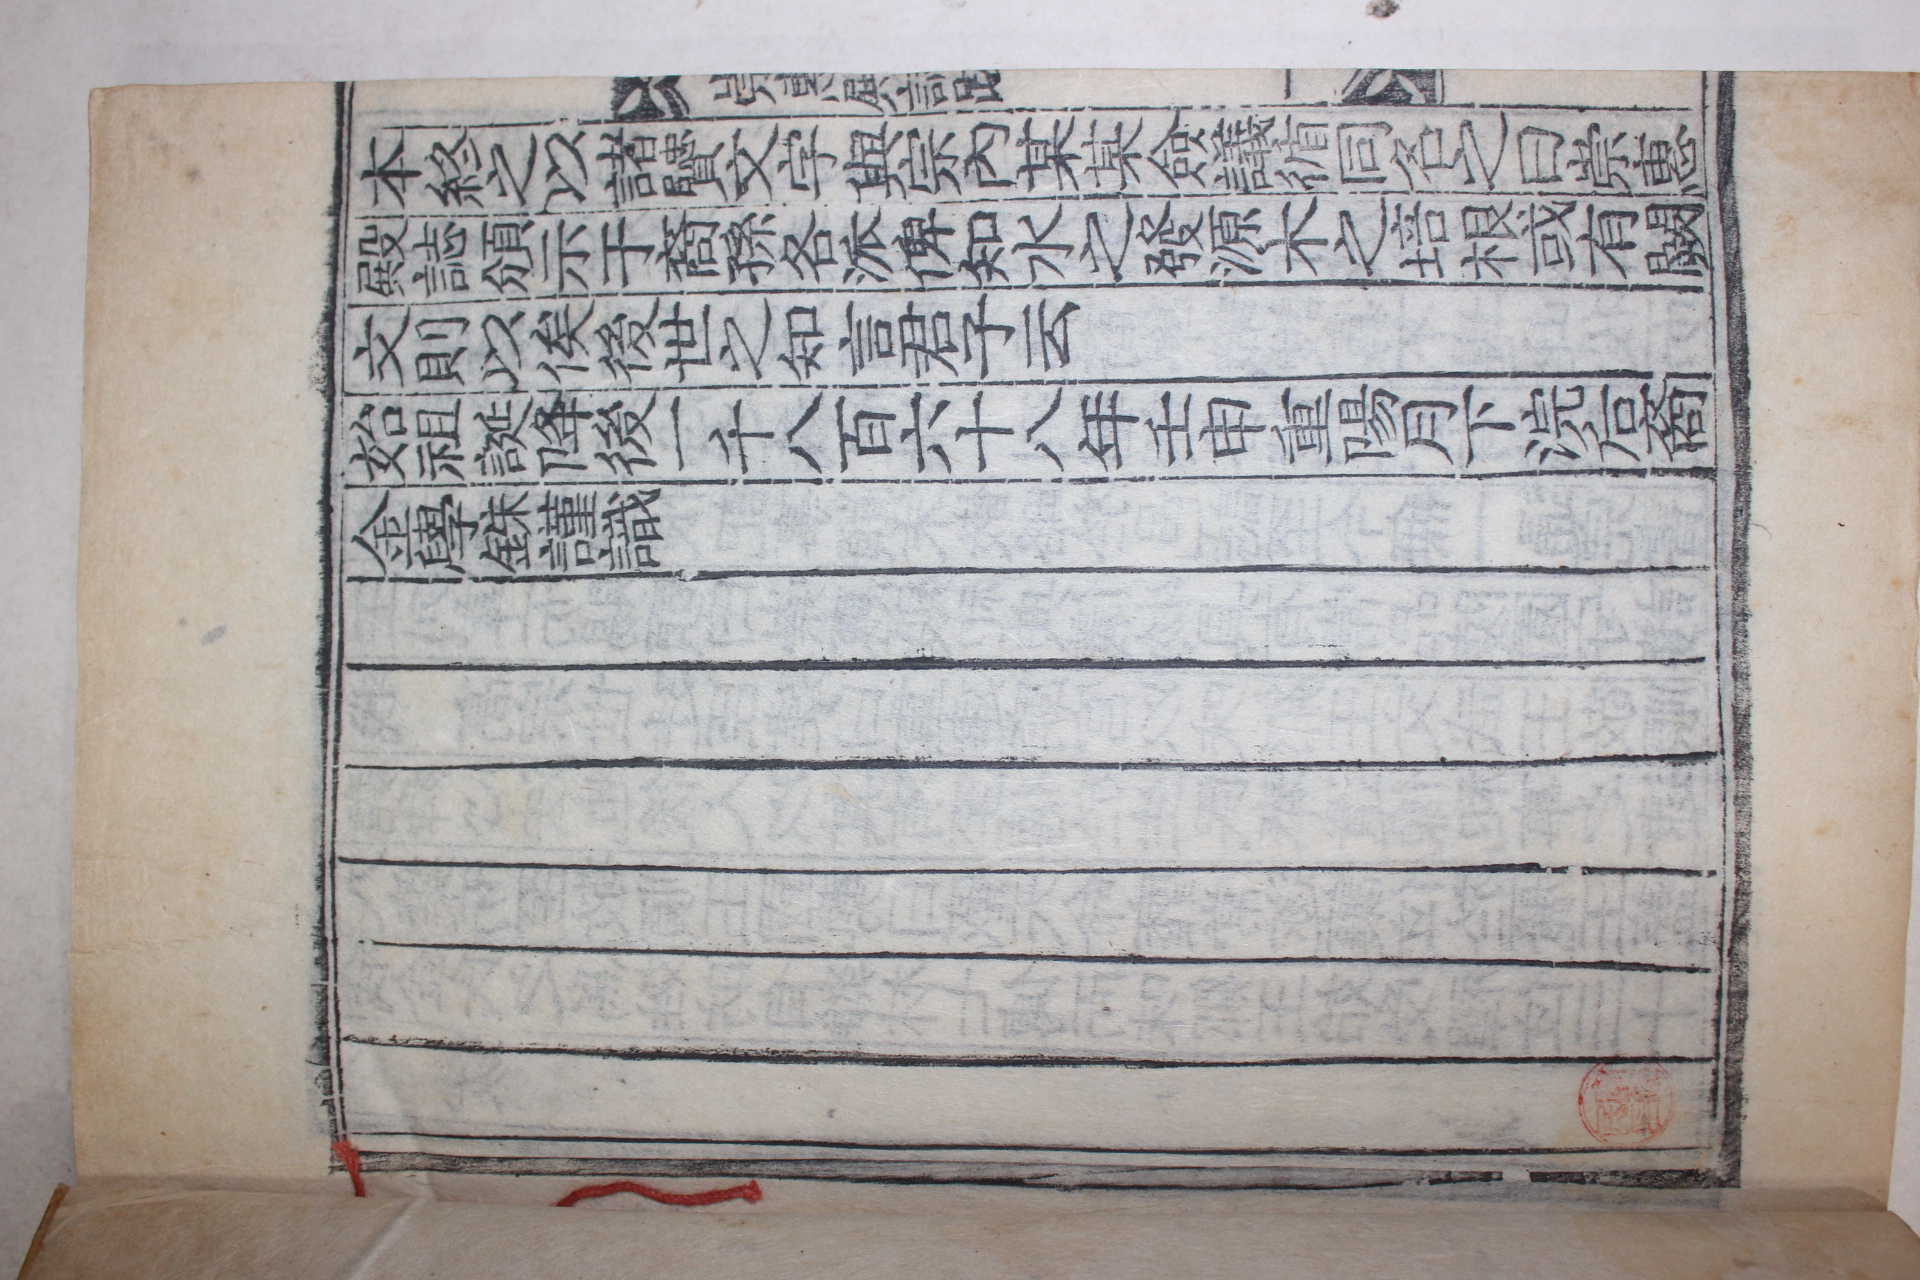 崇惠殿誌
本終之以諸讚文字與宗內某某僉議偕同名之曰崇惠
殿誌頒示于裔孫各派俾知水之發源木之培根或有闕
文則以俟後世之知言君子云
始祖誕降後一千八百六十八年壬申重陽月下浣后裔
金學銖謹識